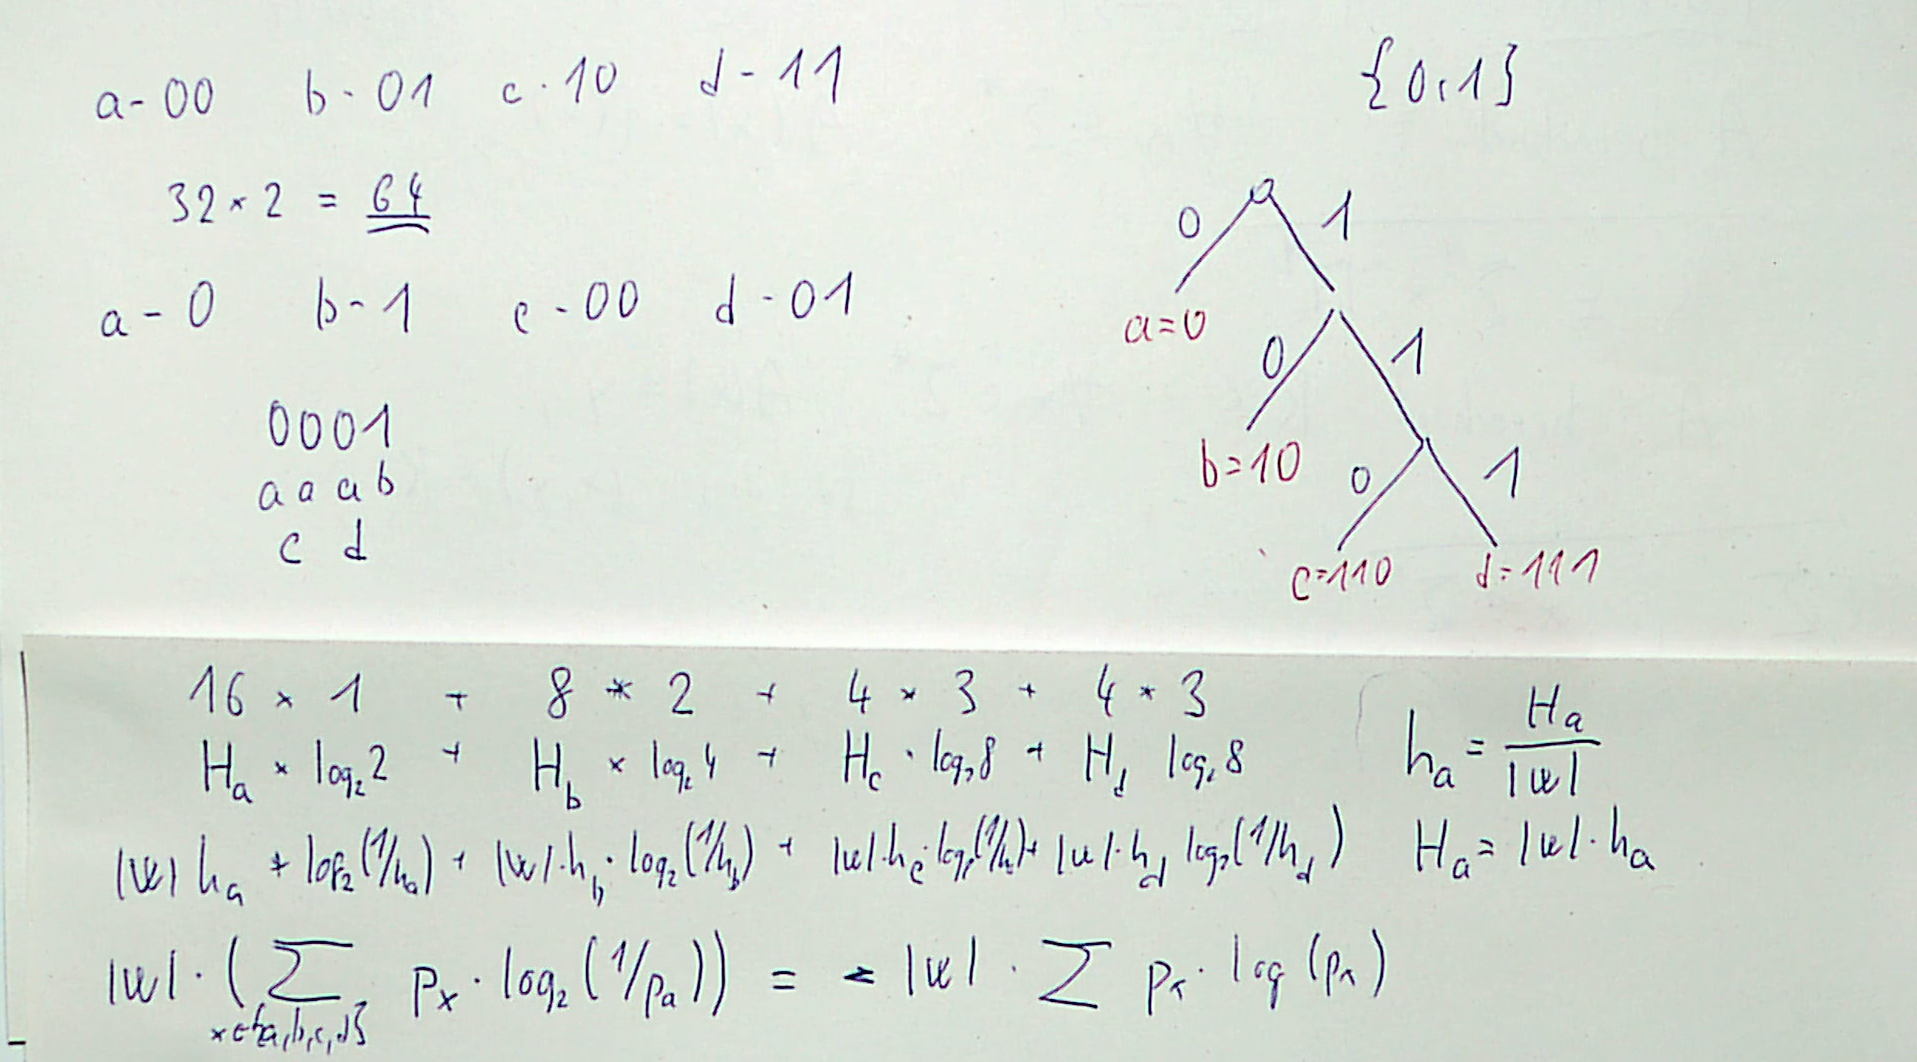 a - 00 b - 01 c · 10 d - 11
{0,1}
32 × 2 = 64
a - 0 b - 1 c - 00 d - 01
0001
a a a b
c d
0 1
a=0
0 1
b=10
0 1
c=110 d=111
16 × 1 + 8 * 2 + 4 × 3 + 4 * 3
H_a × log_2 2 + H_b × log_2 4 + H_c · log_2 8 + H_d log_2 8
h_a = H_a / |w|
|w| h_a * log_2(1/h_a) + |w|·h_b · log_2(1/h_b) + |w|·h_c·log_2(1/h_c) + |w|·h_d log_2(1/h_d)
H_a = |w|·h_a
|w| · (∑_{x∈{a,b,c,d}} p_x · log_2(1/p_a)) = - |w| · ∑ p_x · log(p_x)